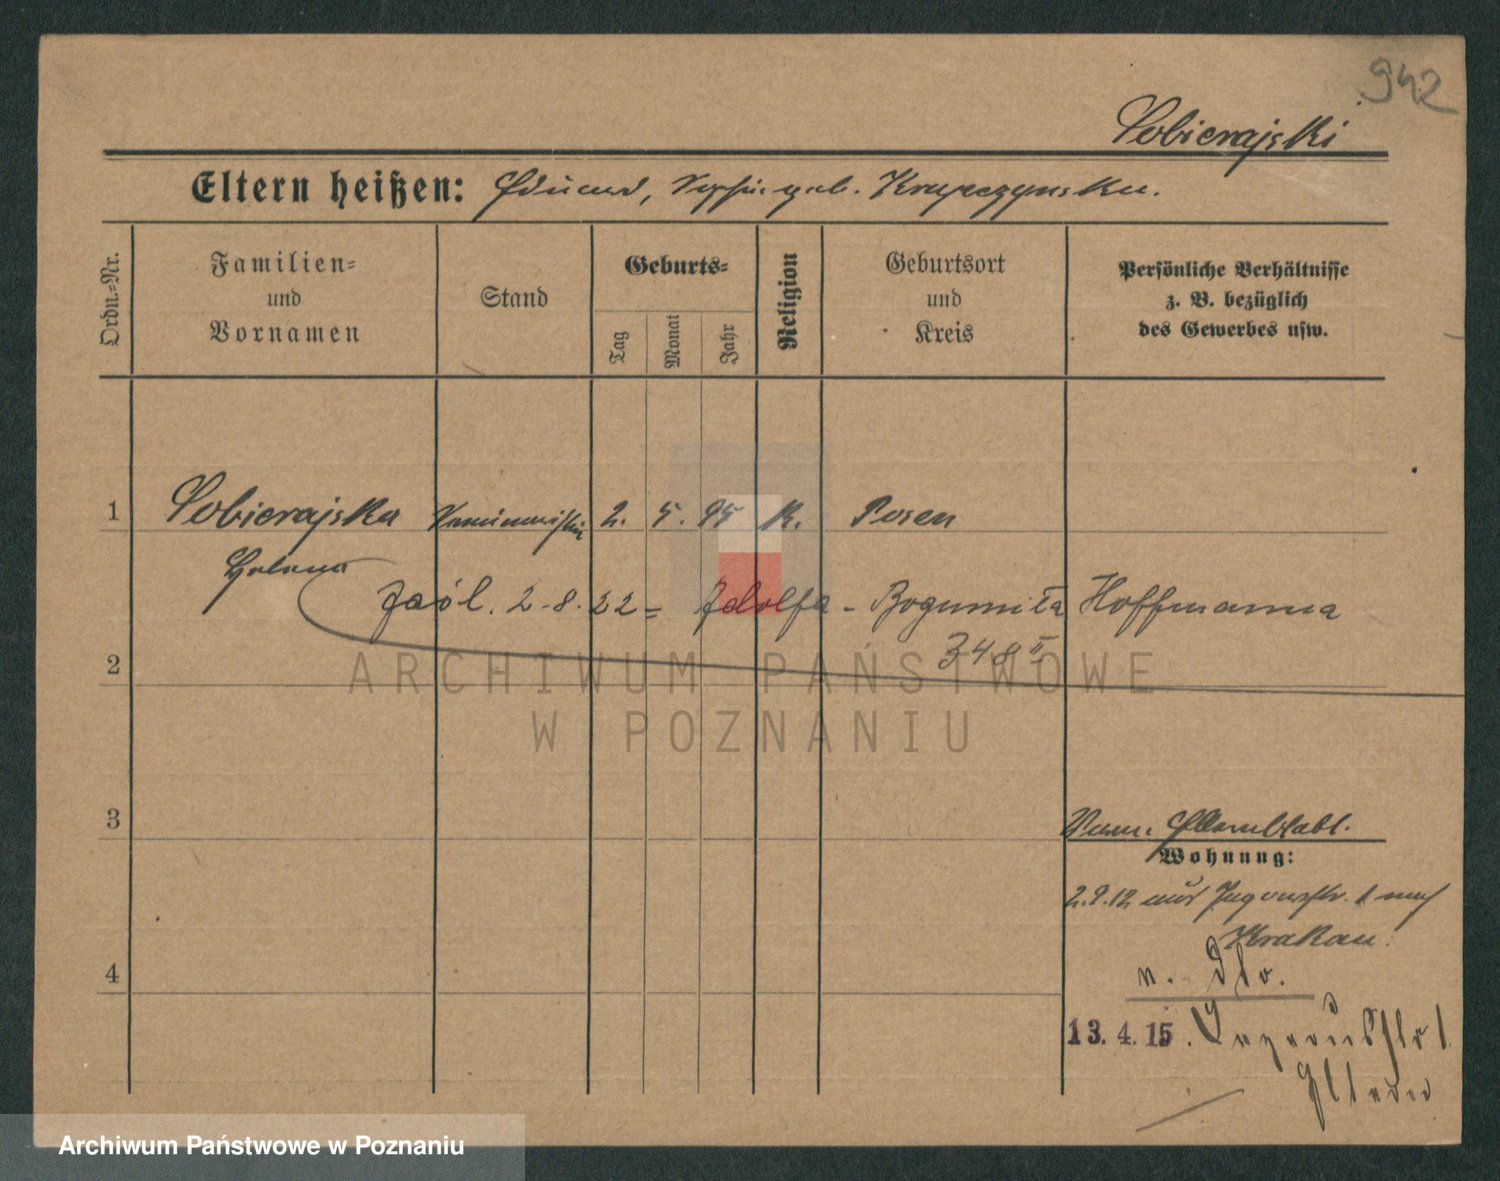 942
Sobierajski
Eltern heißen: Eduard, Sophie geb. Krupczynska.
Ordn.=Nr.
Familien=
und
Vornamen
Stand
Geburts=
Tag
Monat
Jahr
Religion
Geburtsort
und
Kreis
Persönliche Verhältnisse
z. B. bezüglich
des Gewerbes usw.
1 Sobierajska 2. 5. 95 K. Posen
Helena
zaśl. 2-8-22 = Adolfa - Bogumiła Hoffmanna
348 II
2
ARCHIWUM PAŃSTWOWE
W POZNANIU
3
Elternblatt.
Wohnung:
2.9.12 aus 1 nach
Krakau.
4
n. dto.
13.4.15. 1
Eltern
Archiwum Państwowe w Poznaniu